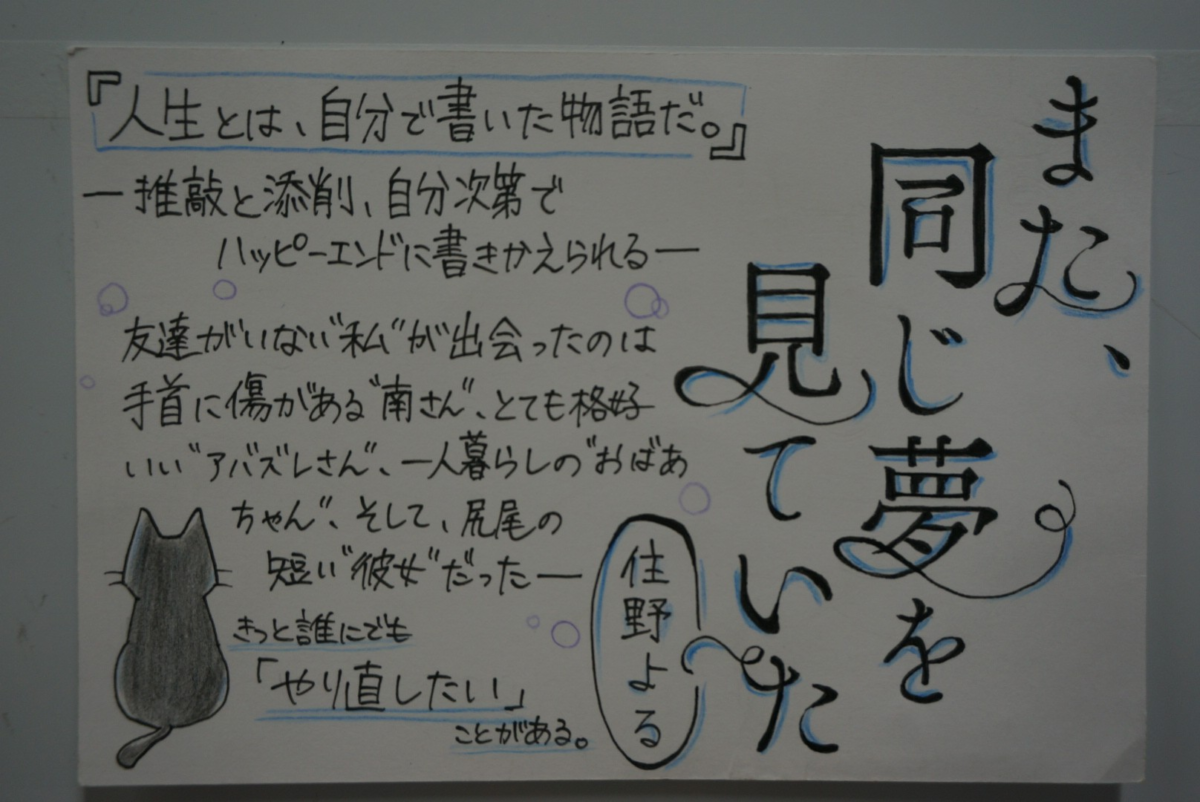 また、
同じ夢を
見ていた
住野よる
『人生とは、自分で書いた物語だ。』
―推敲と添削、自分次第で
ハッピーエンドに書きかえられる―
友達がいない"私"が出会ったのは
手首に傷がある"南さん"、とても格好
いい"アバズレさん"、一人暮らしの"おばあ
ちゃん"、そして、尻尾の
短い"彼女"だった―
きっと誰にでも
「やり直したい」
ことがある。